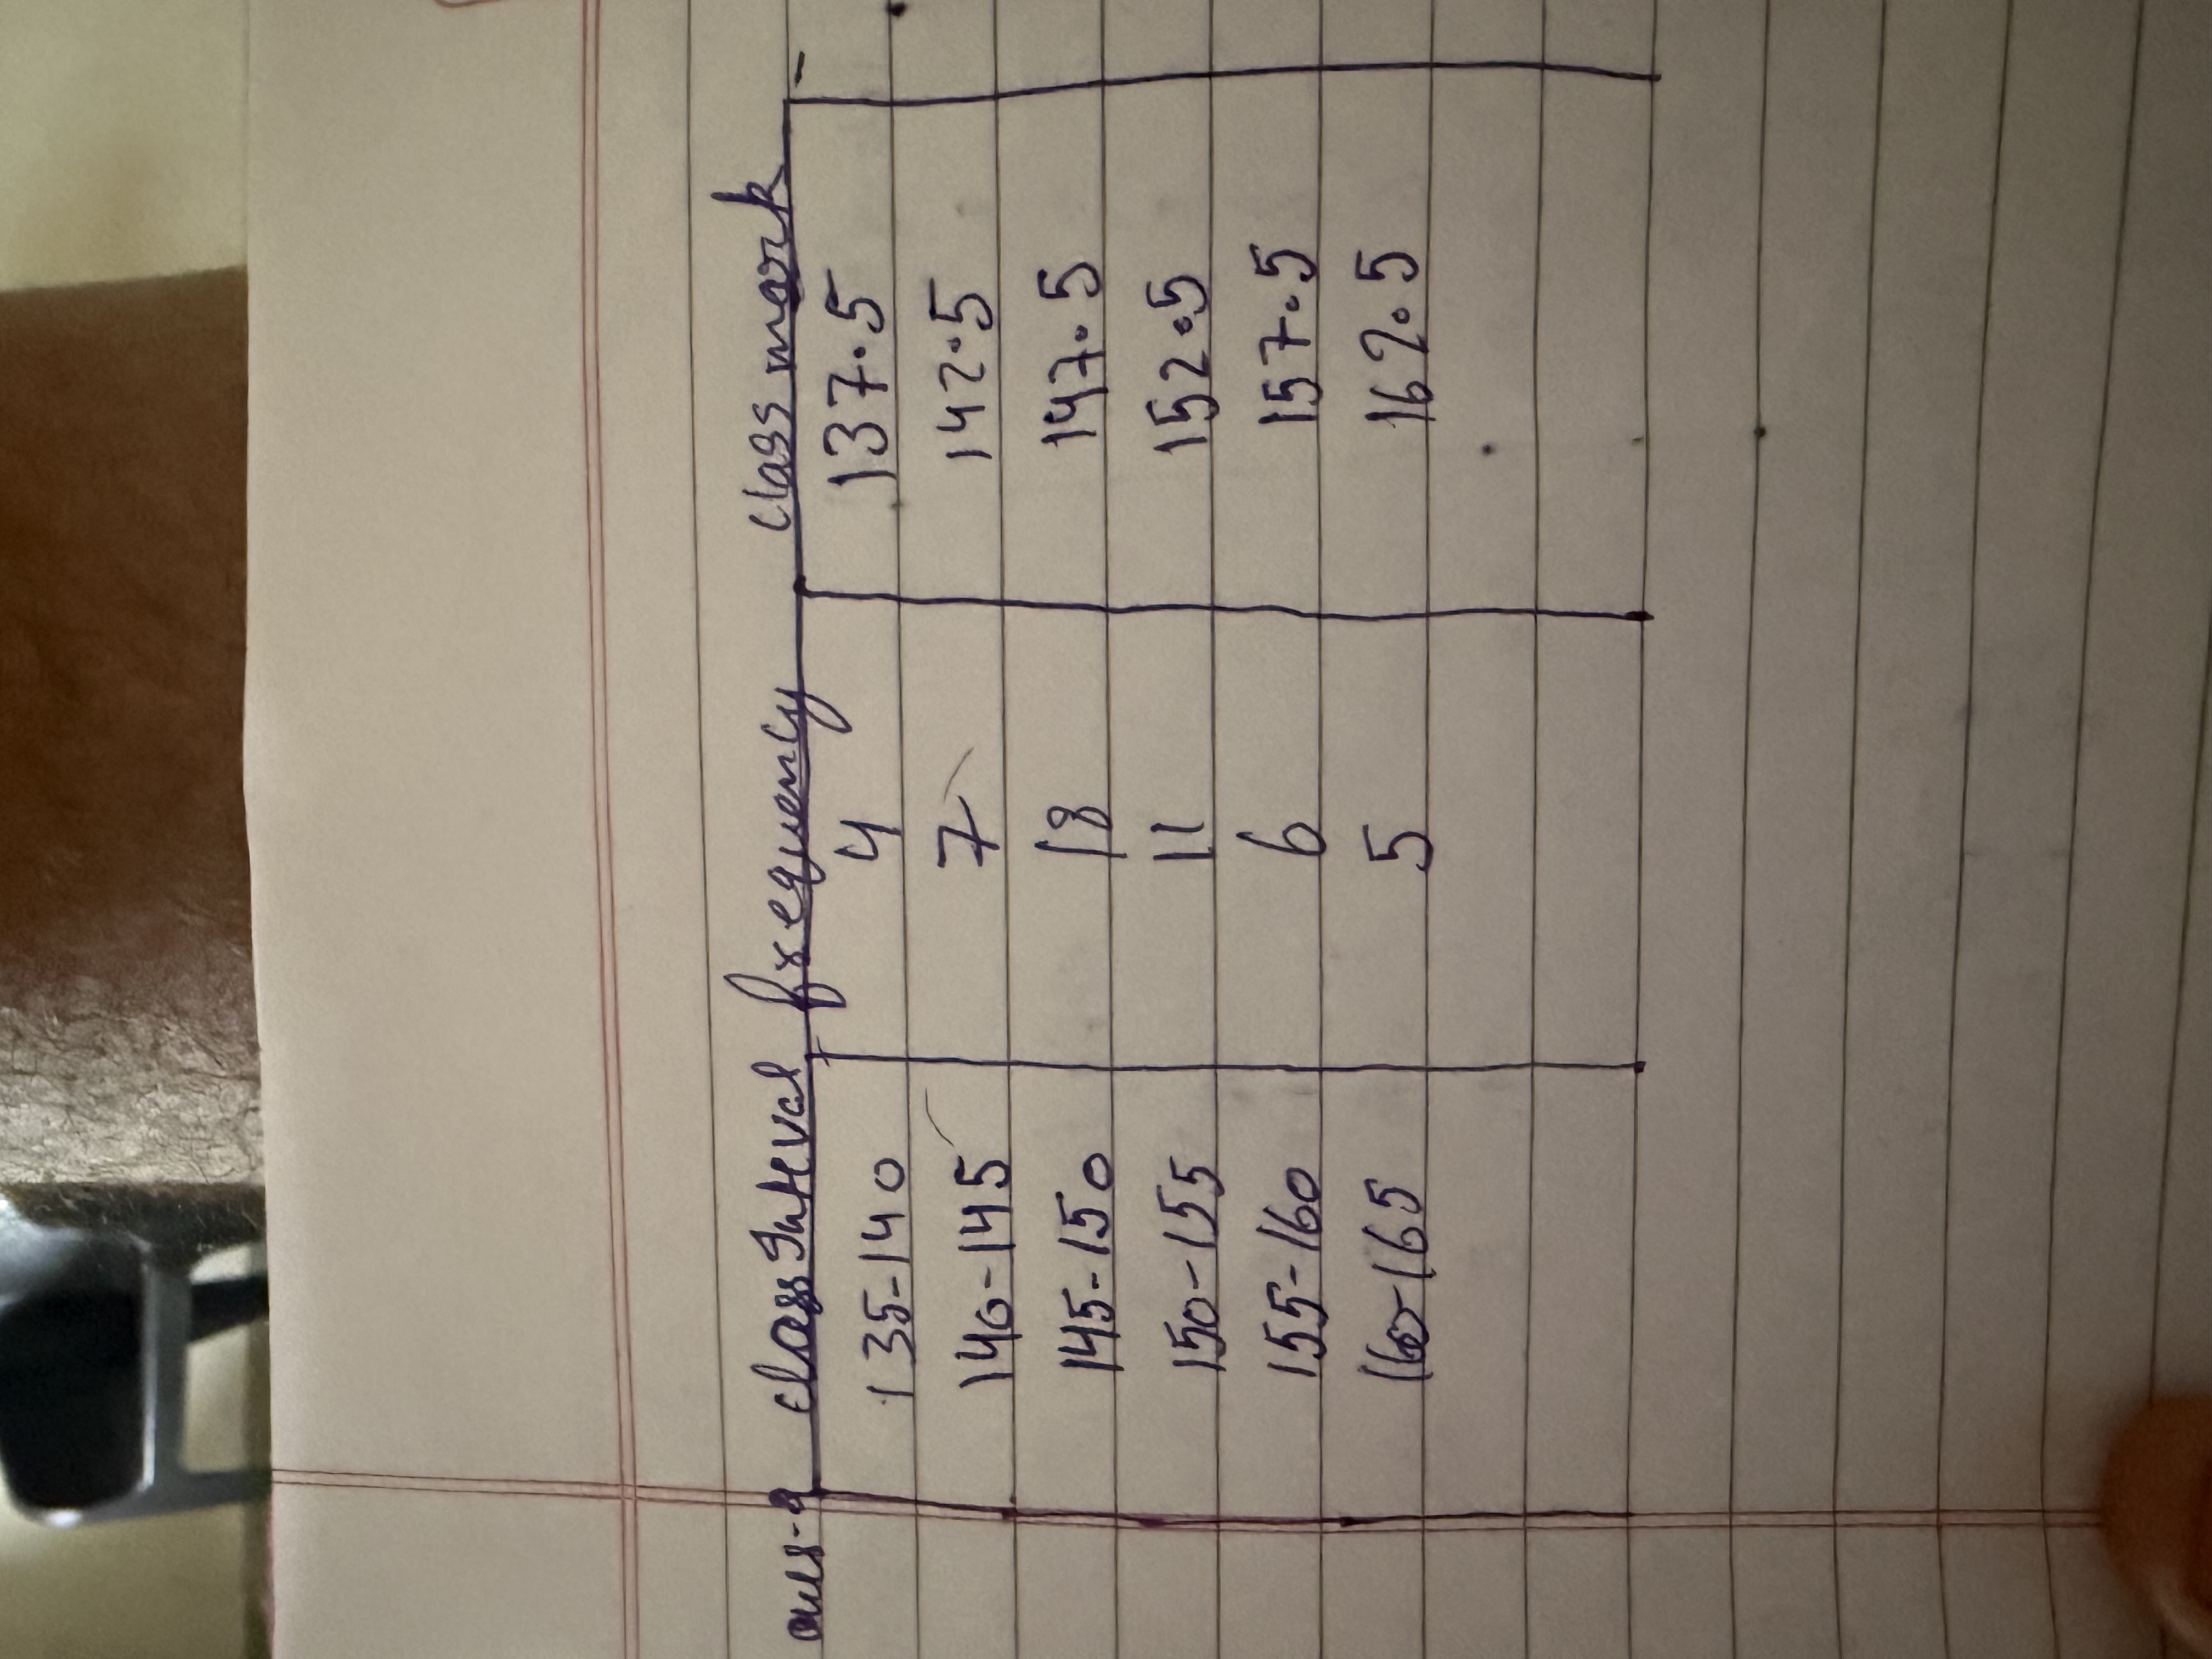 ans-9 class Interval frequency class mark
135-140 4 137.5
140-145 7 142.5
145-150 18 147.5
150-155 11 152.5
155-160 6 157.5
160-165 5 162.5